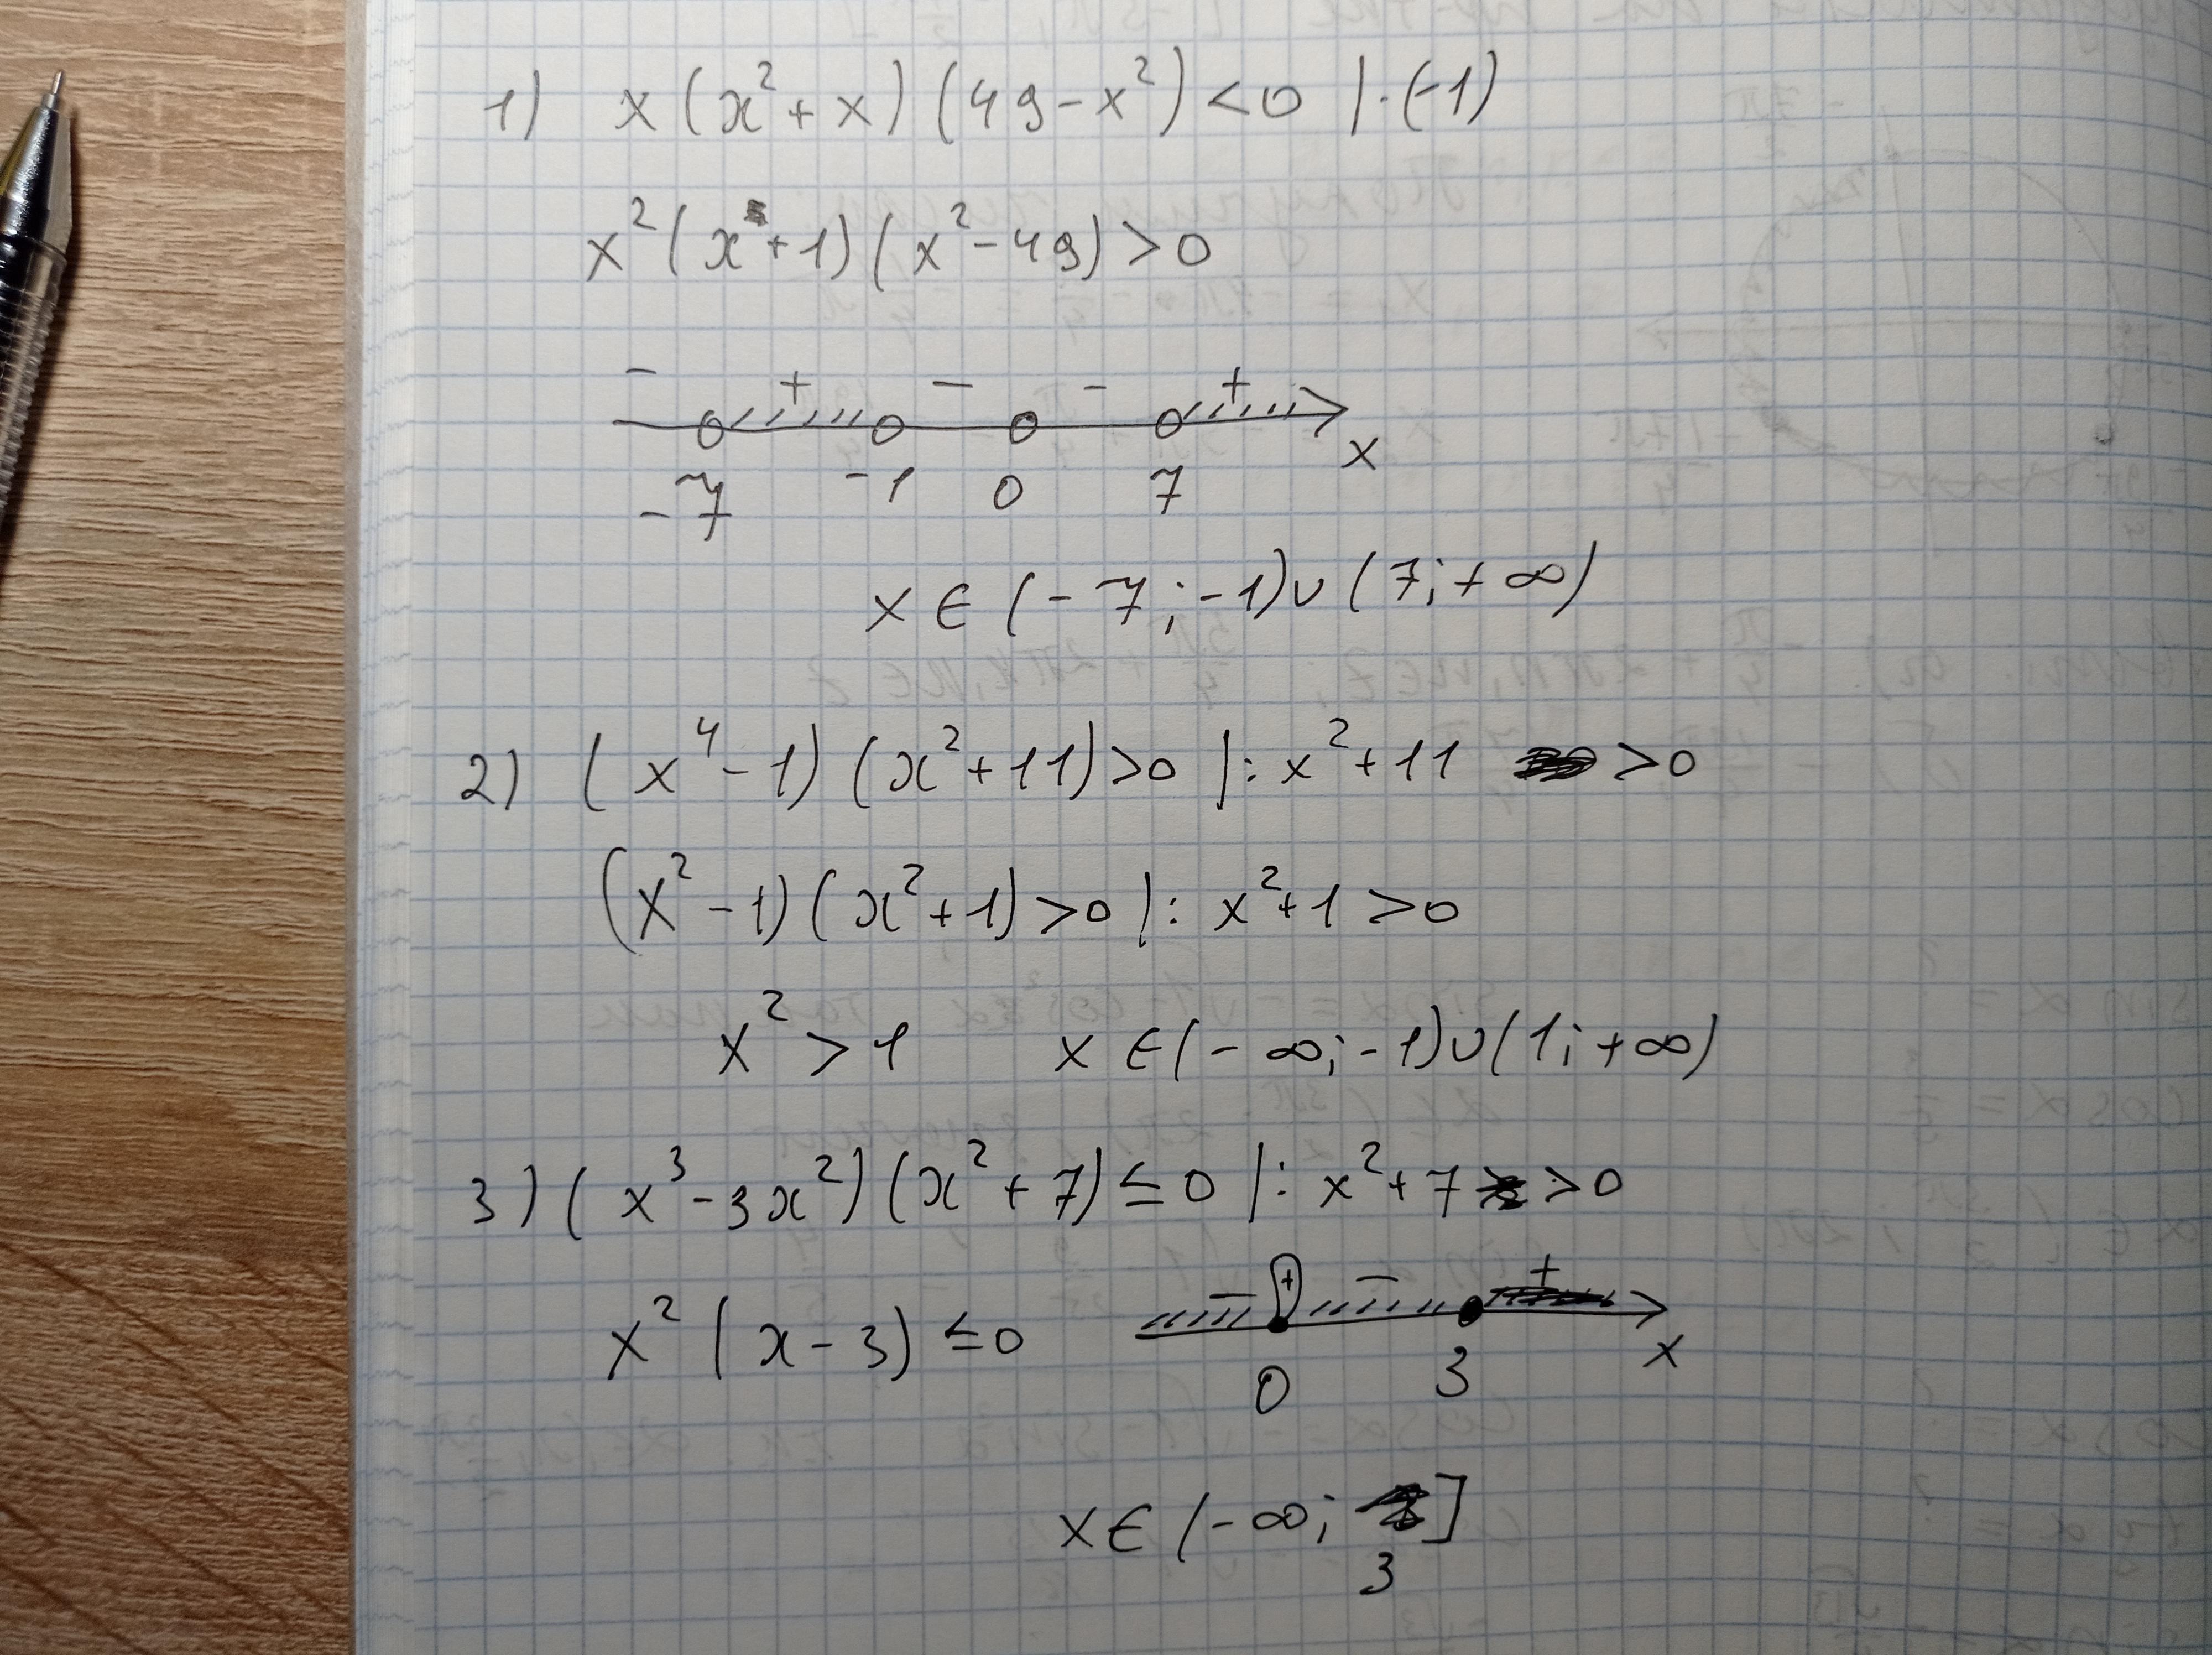 1) x(x²+x)(49-x²)<0 |·(-1)
x²(x+1)(x²-49)>0
- + - - +
-7 -1 0 7 x
x∈(-7;-1)∪(7;+∞)
2) (x⁴-1)(x²+11)>0 |: x²+11 >0
(x²-1)(x²+1)>0 |: x²+1>0
x²>1 x∈(-∞;-1)∪(1;+∞)
3) (x³-3x²)(x²+7)≤0 |: x²+7 >0
x²(x-3)≤0 - + - +
0 3 x
x∈(-∞; 3]